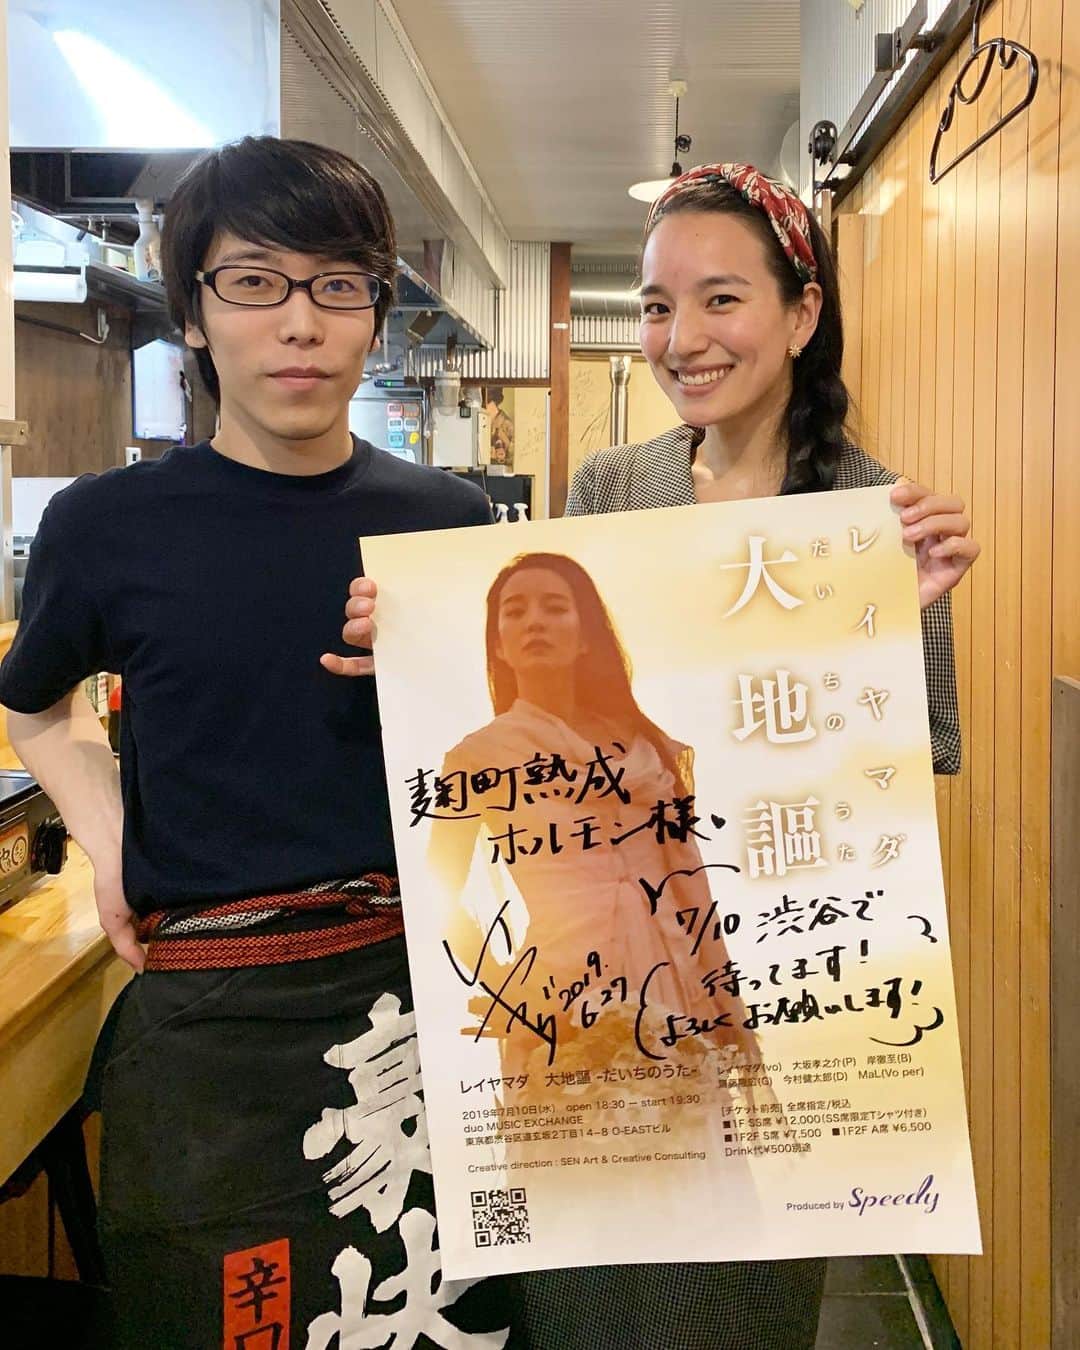 レイヤマダ
大地謳
だいちのうた
麹町熟成
ホルモン様
7/10 渋谷で
待ってます!
よろしくお願いします!
レイヤマダ
2019.
6.27
レイヤマダ 大地謳 -だいちのうた-
2019年7月10日(水) open 18:30 ー start 19:30
duo MUSIC EXCHANGE
東京都渋谷区道玄坂2丁目14−8 O-EASTビル
Creative direction : SEN Art & Creative Consulting
レイヤマダ(vo) 大坂孝之介(P) 岸徹至(B)
今村健太郎(D) MaL(Vo per)
[チケット前売] 全席指定/税込
■1F SS席 ¥12,000(SS席限定Tシャツ付き)
■1F2F S席 ¥7,500 ■1F2F A席 ¥6,500
Drink代¥500別途
Produced by Speedy
豪快
辛口